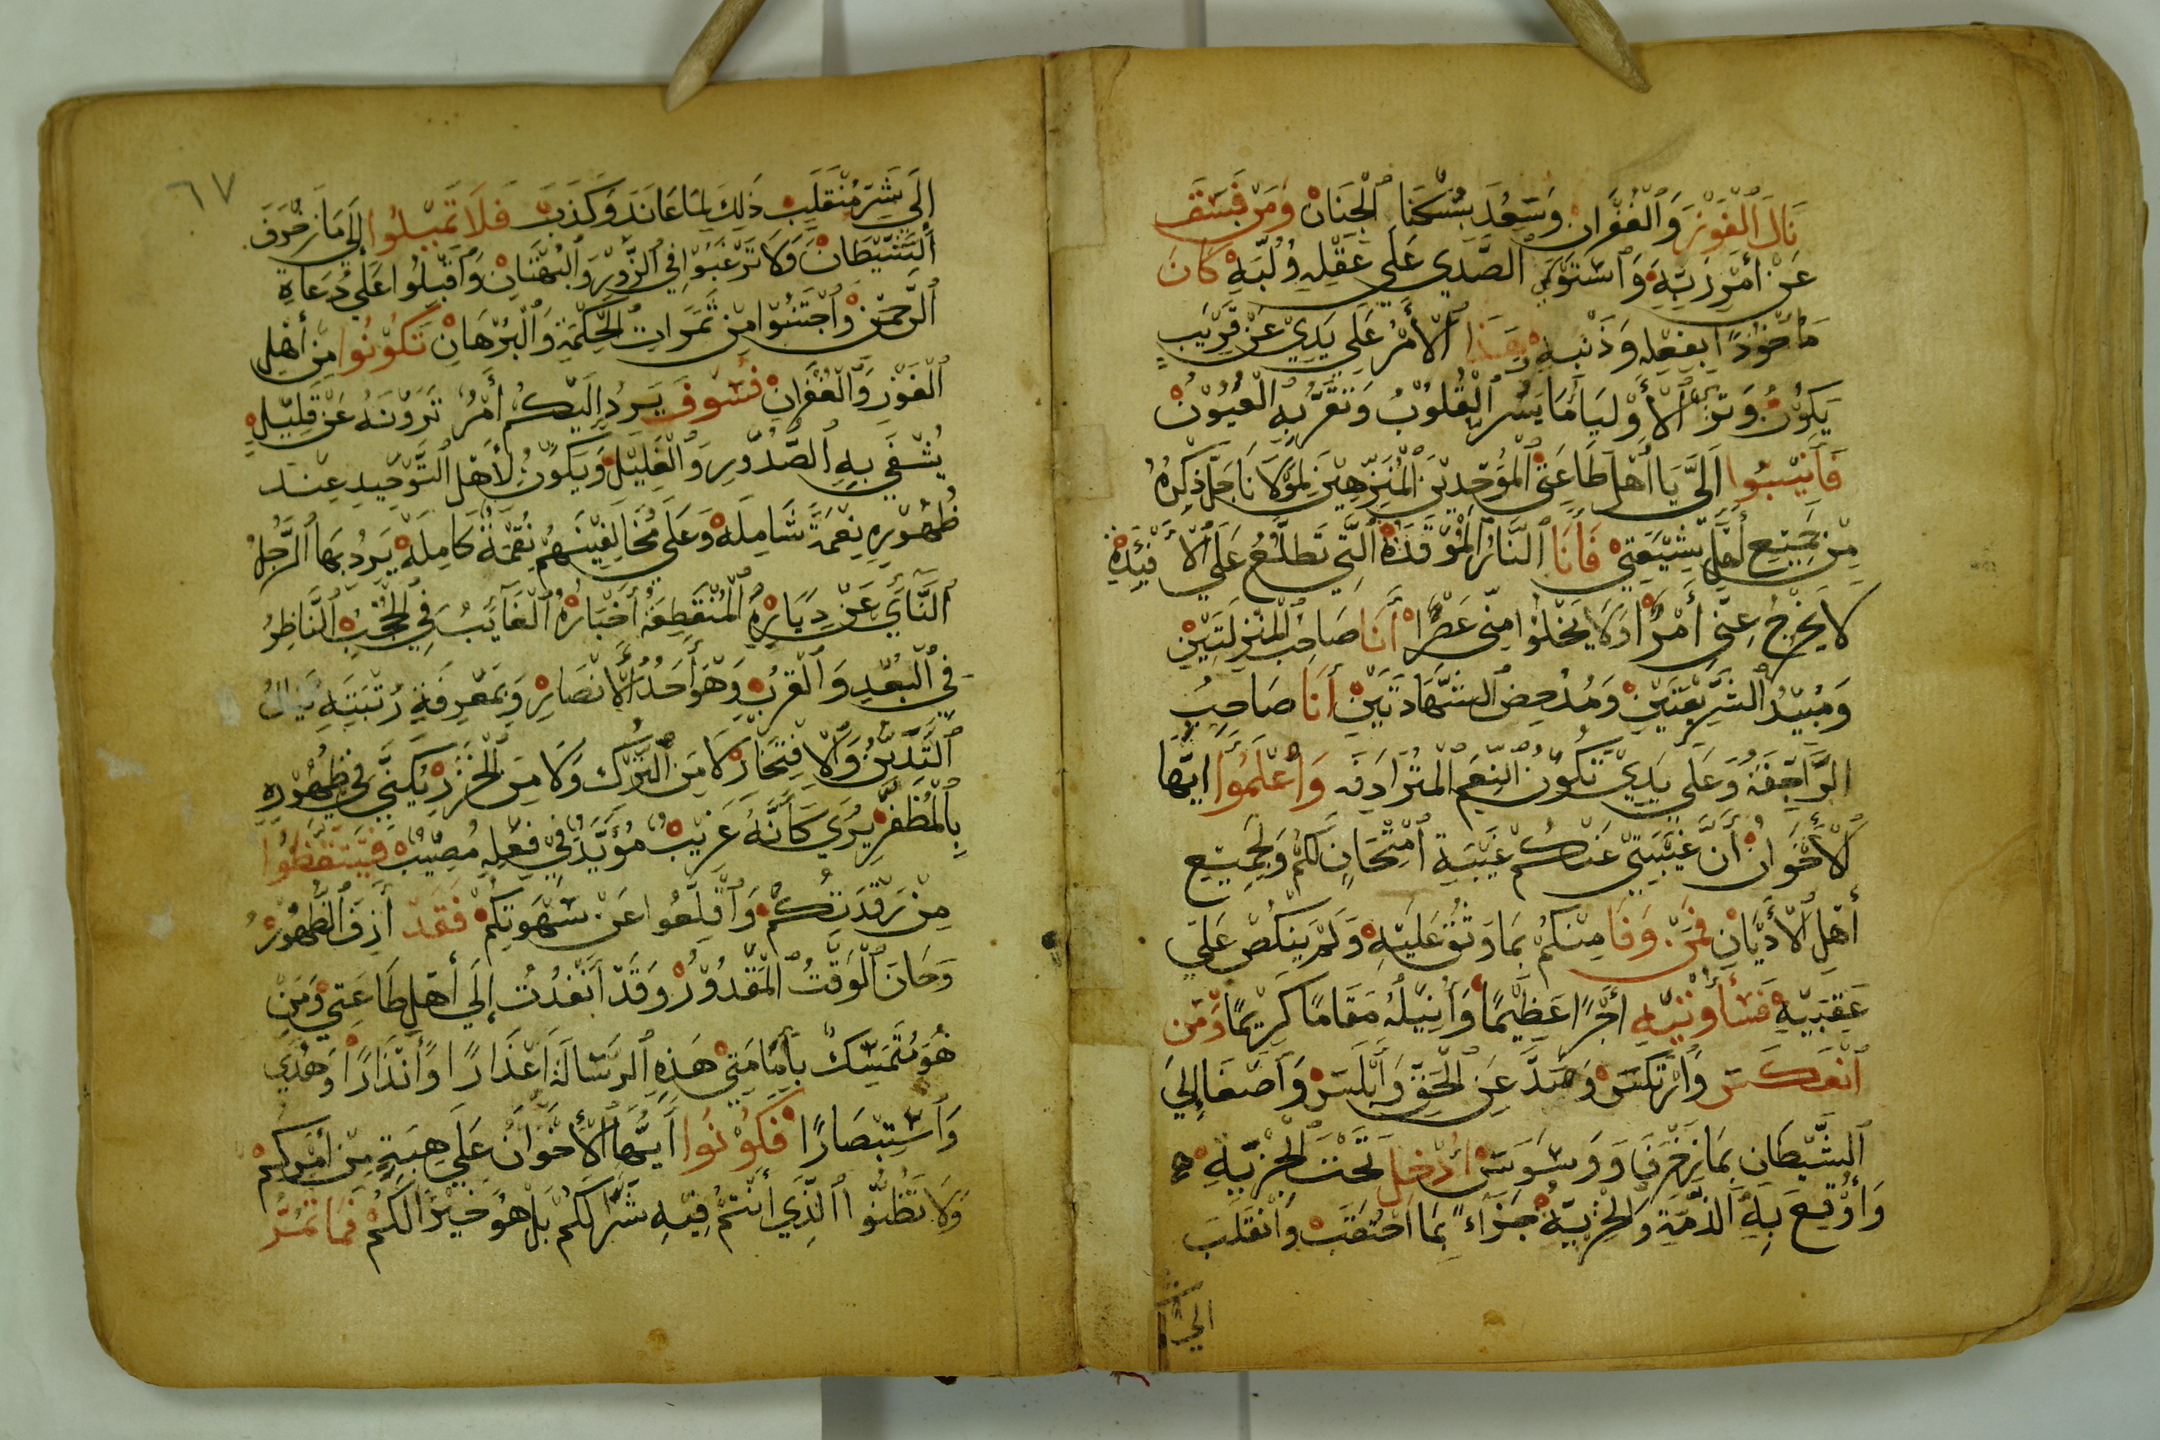 نَالَ الْفَوْزَ وَالْغُفْرَانْ وَسَعُدَ بِسُكْنَا الْجِنَانْ وَمَنْ فَسَقَ
عَنْ أَمْرِ رَبِّهْ وَاسْتَوْلَى الصَّدَى عَلَى عَقْلِهِ وَلُبِّهْ كَانَ
مَأْخُوذًا بِفِعْلِهِ وَذَنْبِهْ وَهَذَا الْأَمْرُ عَلَى يَدِيْ عَنْ قَرِيبٍ
يَكُوْنْ وَتَرَى الْأَوْلِيَا مَا يَسُرُّ الْقُلُوبُ وَتَقَرُّ بِهِ الْعُيُوْنْ
فَأَنِيْبُوا إِلَيَّ يَا أَهْلَ طَاعَتِيْ الْمُوَحِّدِيْنَ الْمُنَزِّهِيْنَ لِمَوْلَانَا جَلَّ ذِكْرُهُ
مِنْ جَمِيْعِ أَهْلِ شِيْعَتِيْ فَأَنَا النَّارُ الْمُوْقَدَهْ الَّتِي تَطَّلِعُ عَلَى الْأَفْئِدَهْ
لَا يَخْرُجُ عَنِّي أَمْرًا وَلَا يَخْلُوا مِنِّي عَصْرًا أَنَا صَاحِبُ الْمَنْزِلَتَيْنِ
وَمُبِيْدُ الشَّرِيْعَتَيْنْ وَمُدْحِضُ الشَّهَادَتَيْنْ أَنَا صَاحِبُ
الرَّاجِفَهْ وَعَلَى يَدِيْ تَكُونُ النِّعَمُ الْمُتَرَادِفَه وَاعْلَمُوْا ايُّهَا
الْأَخْوَانْ أَنَّ غَيْبَتِيْ عَنْكُمْ غَيْبَةُ امْتِحَانٍ لَكُمْ وَلِجَمِيْعِ
أَهْلِ الْأَدْيَانِ فَمَنْ وَفَا مِنْكُمْ بِمَا وَثَقَ عَلَيْهْ وَلَمْ يَنْكُصْ عَلَى
عَقِبَيْهْ فَسَأُوْتِيْهِ أَجْرًا عَظِيْمًا وَأُنِيْلُهُ مَقَامًا كَرِيْمًا وَمَن
انْعَكَسَ وَارْتَكَسَ وَصَدَّ عَنِ الْحَقِّ وَأَبْلَسَ وَأَصْغَا إِلَى
الشَّيْطَانِ بِمَا زَخْرَفَ وَوَسْوَسَ أُدْخِلَ تَحْتَ الْجِزْيَهْ
وَأُوْقِعَ بِهِ الذِّمَّةِ وَالْخِزْيَهْ جَزَاءً بِمَا احْتَقَبَ وَانْقَلَبَ
الي
٦٧
إِلَى شَرِّ مُنْقَلَبٍ ذَلِكَ لِمَا عَانَدَ وَكَذَّبَ فَلَا تَمِيْلُوا إِلَى مَا زَخْرَفَ
الشَّيْطَانْ وَلَا تَرْغَبُوا فِي الزُّوْرِ وَالْبُهْتَانْ وَاقْبِلُوا عَلَى دُعَاةِ
الرَّحْمَنْ وَاجْتَنُوْا مِنْ ثَمَرَاتِ الْحِكْمَةِ وَالْبُرْهَانْ تَكُوْنُوا مِنْ أَهْلِ
الْفَوْزِ وَالْغُفْرَانْ فَسَوْفَ يَرِدُ إِلَيْكُم أَمْرٌ تَرَوْنَهُ عَنْ قَلِيْلٍ
يُشْفَى بِهِ الصُّدُوْرِ وَالْغَلِيْلْ وَيَكُونُ لِأَهْلِ التَّوْحِيدِ عِنْدَ
ظُهُوْرِهِ نِعْمَةً شَامِلَهْ وَعَلَى مُخَالِفِيْنَهُمْ نِقْمَةً كَامِلَهْ يَرِدُ بِهَا الرَّجُلْ
النَّائَي عَنْ دِيَارِهْ الْمُنْقَطِعَةُ أَخْبَارُهْ الْغَايِبُ فِي الْحُجُبْ النَّاظِرُ
فِي الْبُعْدِ وَالْقُرْبْ وَهُوَ أَحَدُ الْأَنْصَارِ وَبِمَعْرِفَةِ رُتْبَتِهِ يَنَالُ
التَّدَيُّنُ وَالْافْتِخَارْ لَا مِنَ التُّرْك وَلَا مِنَ الْخَزَرْ يُكَنَّى فِي ظُهُوْرِهِ
بِالْمُظَفَّرْ يُرَى كَأَنَّهُ غَرِيْبْ مُؤَيَّدٌ فِي فِعْلِهِ مُصِيْبْ فَتَيَقَّظُوا
مِنْ رَقْدَتِكُمْ وَاقْلَعُوا عَنْ شَهْوَتِكُمْ فَقَدْ أَزِفَ الظُّهُوْرْ
وَحَانَ الْوَقْتُ الْمَقْدُوْرْ وَقَدْ أَنْفَذْتُ إِلَى أَهْلِ طَاعَتِيْ وَمَنْ
هُوَ مُتَمَسِّكٌ بِأَمَامَتِيْ هَذِهِ الرِّسَالَةَ اعْذَارًا وَأَنْذَارًا وَهُدًى
وَاسْتِبْصَارًا فَكُوْنُوا أَيُّهَا الْأَخْوَانُ عَلَى هِبَةٍ مِنْ أَمْرِكُمْ
وَلَا تَظُنُّوا الَّذِي أَنْتُمْ فِيْهِ شَرًّا لَكُمْ بَلْ هُوَ خَيْرًا لَكُمْ فَمَا تَمُرُّ